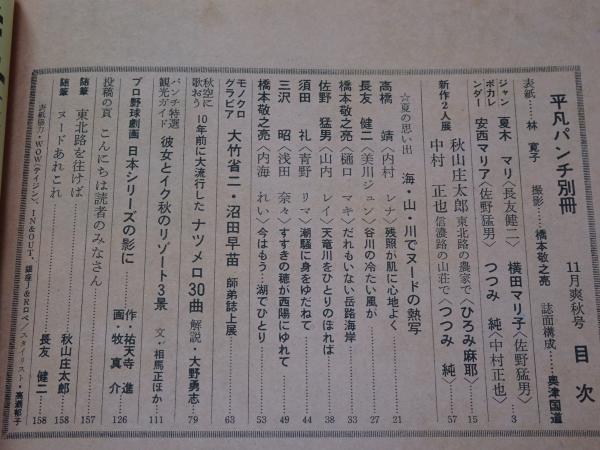 平凡パンチ別冊 11月爽秋号 目次
表紙……林 寛子 撮影……橋本敬之亮 誌面構成……奥津国道
ジャンボカレンダー 夏木 マリ〈長友健二〉 横田マリ子〈佐野猛男〉
安西マリア〈佐野猛男〉 つつみ 純〈中村正也〉 3
新作2人展 秋山庄太郎 東北路の農家で〈ひろみ麻耶〉 15
中村 正也 信濃路の山荘で〈つつみ 純〉 57
☆夏の思い出 海・山・川でヌードの熱写
高橋 靖〈内村 レナ〉残照が肌に心地よく 21
長友 健二〈美川ジュン〉谷川の冷たい風が 27
橋本敬之亮〈樋口 マキ〉だれもいない岳路海岸 33
佐野 猛男〈山内 レイ〉天竜川をひとりのぼれば 38
須田 礼〈青野 リマ〉潮騒に身をゆだねて 44
三沢 昭〈浅田 奈々〉すすきの穂が西陽にゆれて 49
橋本敬之亮〈内海 れい〉今はもう…湖でひとり 53
モノクログラビア 大竹省二・沼田早苗 師弟誌上展 63
秋空に歌おう 10年前に大流行した ナツメロ30曲 解説・大野勇志 79
パンチ特選観光ガイド 彼女とイク秋のリゾート3景 文・相馬正ほか 111
プロ野球劇画 日本シリーズの影に 作・祐天寺 進 画・牧 真介 126
投稿の頁 こんにちは読者のみなさん 157
随筆 東北路を往けば 秋山庄太郎 158
随筆 ヌードあれこれ 長友 健二 158
表紙協力・WOW（テイジン）、IN&OUT、銀座J&Rロペ／スタイリスト・高濱郁子